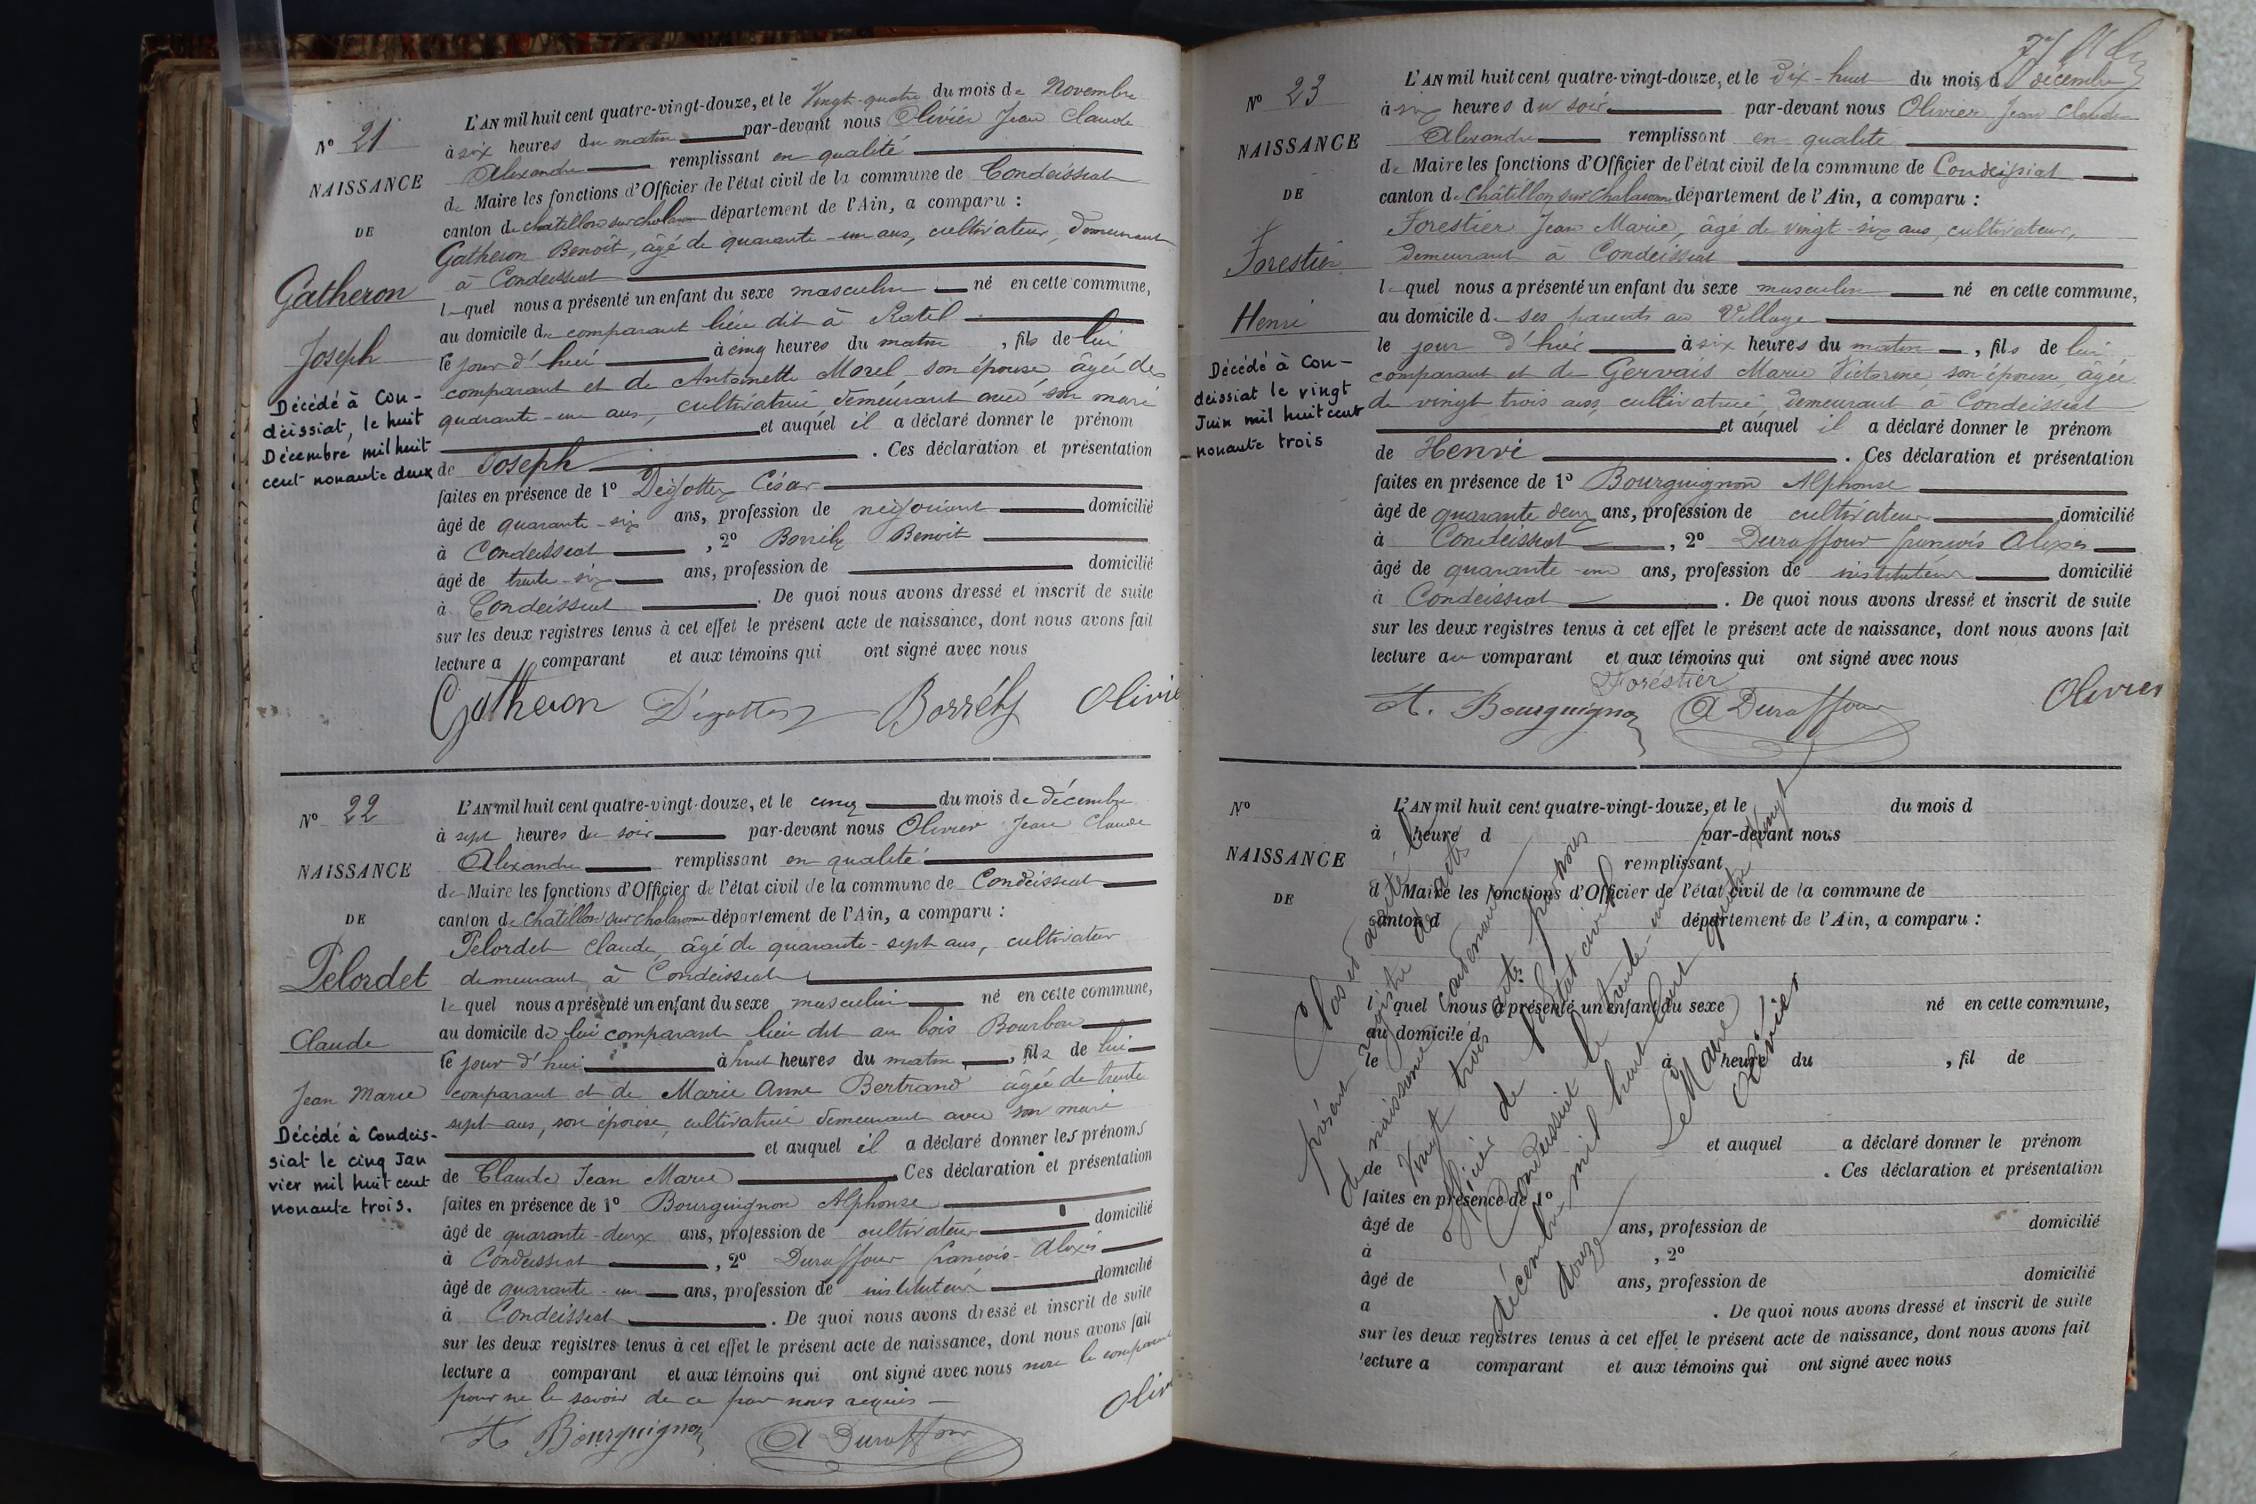 N° 21
NAISSANCE
DE
Gatheron
Joseph
Décédé à Con-
deissiat, le huit
Décembre mil huit
cent nonante deux
L'AN mil huit cent quatre-vingt-douze, et le Vingt-quatre du mois de Novembre
à six heures du matin par-devant nous Olivier Jean Claude
Alexandre remplissant en qualité
de Maire les fonctions d'Officier de l'état civil de la commune de Condeissiat
canton de Chatillon sur Chalaronne département de l'Ain, a comparu :
Gatheron Benoît, âgé de quarante-un ans, cultivateur, demeurant
à Condeissiat
lequel nous a présenté un enfant du sexe masculin né en cette commune,
au domicile du comparant lieu dit à Ratel
le jour d'hui à cinq heures du matin, fils de lui
comparant et de Antoinette Morel son épouse âgée de
quarante-un ans, cultivatrice demeurant avec son mari
et auquel il a déclaré donner le prénom
de Joseph. Ces déclaration et présentation
faites en présence de 1° Dégottex César
âgé de quarante-six ans, profession de négociant domicilié
à Condeissiat, 2° Borrély Benoit
âgé de trente-six ans, profession de domicilié
à Condeissiat. De quoi nous avons dressé et inscrit de suite
sur les deux registres tenus à cet effet le présent acte de naissance, dont nous avons fait
lecture a comparant et aux témoins qui ont signé avec nous
Gatheron Dégottex Borrély Olivie
N° 22
NAISSANCE
DE
Pelordet
Claude
Jean Marie
Décédé à Condeis-
siat le cinq Jan
vier mil huit cent
nonante trois.
L'AN mil huit cent quatre-vingt-douze, et le cinq du mois de décembre
à sept heures du soir par-devant nous Olivier Jean Claude
Alexandre remplissant en qualité
de Maire les fonctions d'Officier de l'état civil de la commune de Condeissiat
canton de Chatillon sur Chalaronne département de l'Ain, a comparu :
Pelordet Claude, âgé de quarante-sept ans, cultivateur
demeurant à Condeissiat
lequel nous a présenté un enfant du sexe masculin né en cette commune,
au domicile de lui comparant lieu dit au bois Bourbon
le jour d'hui à huit heures du matin, fils de lui
comparant et de Marie Anne Bertrand âgée de trente
sept ans, son épouse, cultivatrice demeurant avec son mari
et auquel il a déclaré donner les prénoms
de Claude Jean Marie Ces déclaration et présentation
faites en présence de 1° Bourguignon Alphonse
âgé de quarante-deux ans, profession de cultivateur domicilié
à Condeissiat, 2° Duraffour François-Alexis
âgé de quarante-un ans, profession de instituteur domicilié
à Condeissiat. De quoi nous avons dressé et inscrit de suite
sur les deux registres tenus à cet effet le présent acte de naissance, dont nous avons fait
lecture a comparant et aux témoins qui ont signé avec nous non le comparant
pour ne le savoir de ce par nous requis
A. Bourguignon A Duraffour Olivi
77
N° 23
NAISSANCE
DE
Forestier
Henri
Décédé à Con-
deissiat le vingt
Juin mil huit cent
nonante trois
L'AN mil huit cent quatre-vingt-douze, et le dix-huit du mois d décembre
à six heures du soir par-devant nous Olivier Jean Claude
Alexandre remplissant en qualité
de Maire les fonctions d'Officier de l'état civil de la commune de Condeissiat
canton de Châtillon sur Chalaronne département de l'Ain, a comparu :
Forestier Jean Marie, âgé de vingt-six ans, cultivateur,
demeurant à Condeissiat
lequel nous a présenté un enfant du sexe masculin né en cette commune,
au domicile d ses parents au Village
le jour d'hier à six heures du matin, fils de lui
comparant et de Gervais Marie Victorine, son épouse, âgée
de vingt trois ans, cultivatrice, demeurant à Condeissiat
et auquel il a déclaré donner le prénom
de Henri. Ces déclaration et présentation
faites en présence de 1° Bourguignon Alphonse
âgé de quarante deux ans, profession de cultivateur domicilié
à Condeissiat, 2° Duraffour françois Alexis
âgé de quarante-un ans, profession de instituteur domicilié
à Condeissiat. De quoi nous avons dressé et inscrit de suite
sur les deux registres tenus à cet effet le présent acte de naissance, dont nous avons fait
lecture au comparant et aux témoins qui ont signé avec nous
Forestier
A. Bourguignon A Duraffour Olivier
N°
NAISSANCE
DE
L'AN mil huit cent quatre-vingt-douze, et le du mois d
à heure d par-devant nous
remplissant
d Maire les fonctions d'Officier de l'état civil de la commune de
canton d département de l'Ain, a comparu :
l quel nous a présenté un enfant du sexe né en cette commune,
au domicile d
le à heure du , fil de
et auquel a déclaré donner le prénom
de . Ces déclaration et présentation
faites en présence de 1°
âgé de ans, profession de domicilié
à , 2°
âgé de ans, profession de domicilié
a . De quoi nous avons dressé et inscrit de suite
sur les deux registres tenus à cet effet le présent acte de naissance, dont nous avons fait
lecture a comparant et aux témoins qui ont signé avec nous
Clos et arrêté le
présent registre des actes
de naissance contenant
Vingt trois actes par nous
officier de l'état civil
Condeissiat le trente-un
décembre mil huit cent quatre vingt
douze
Le Maire
Olivier